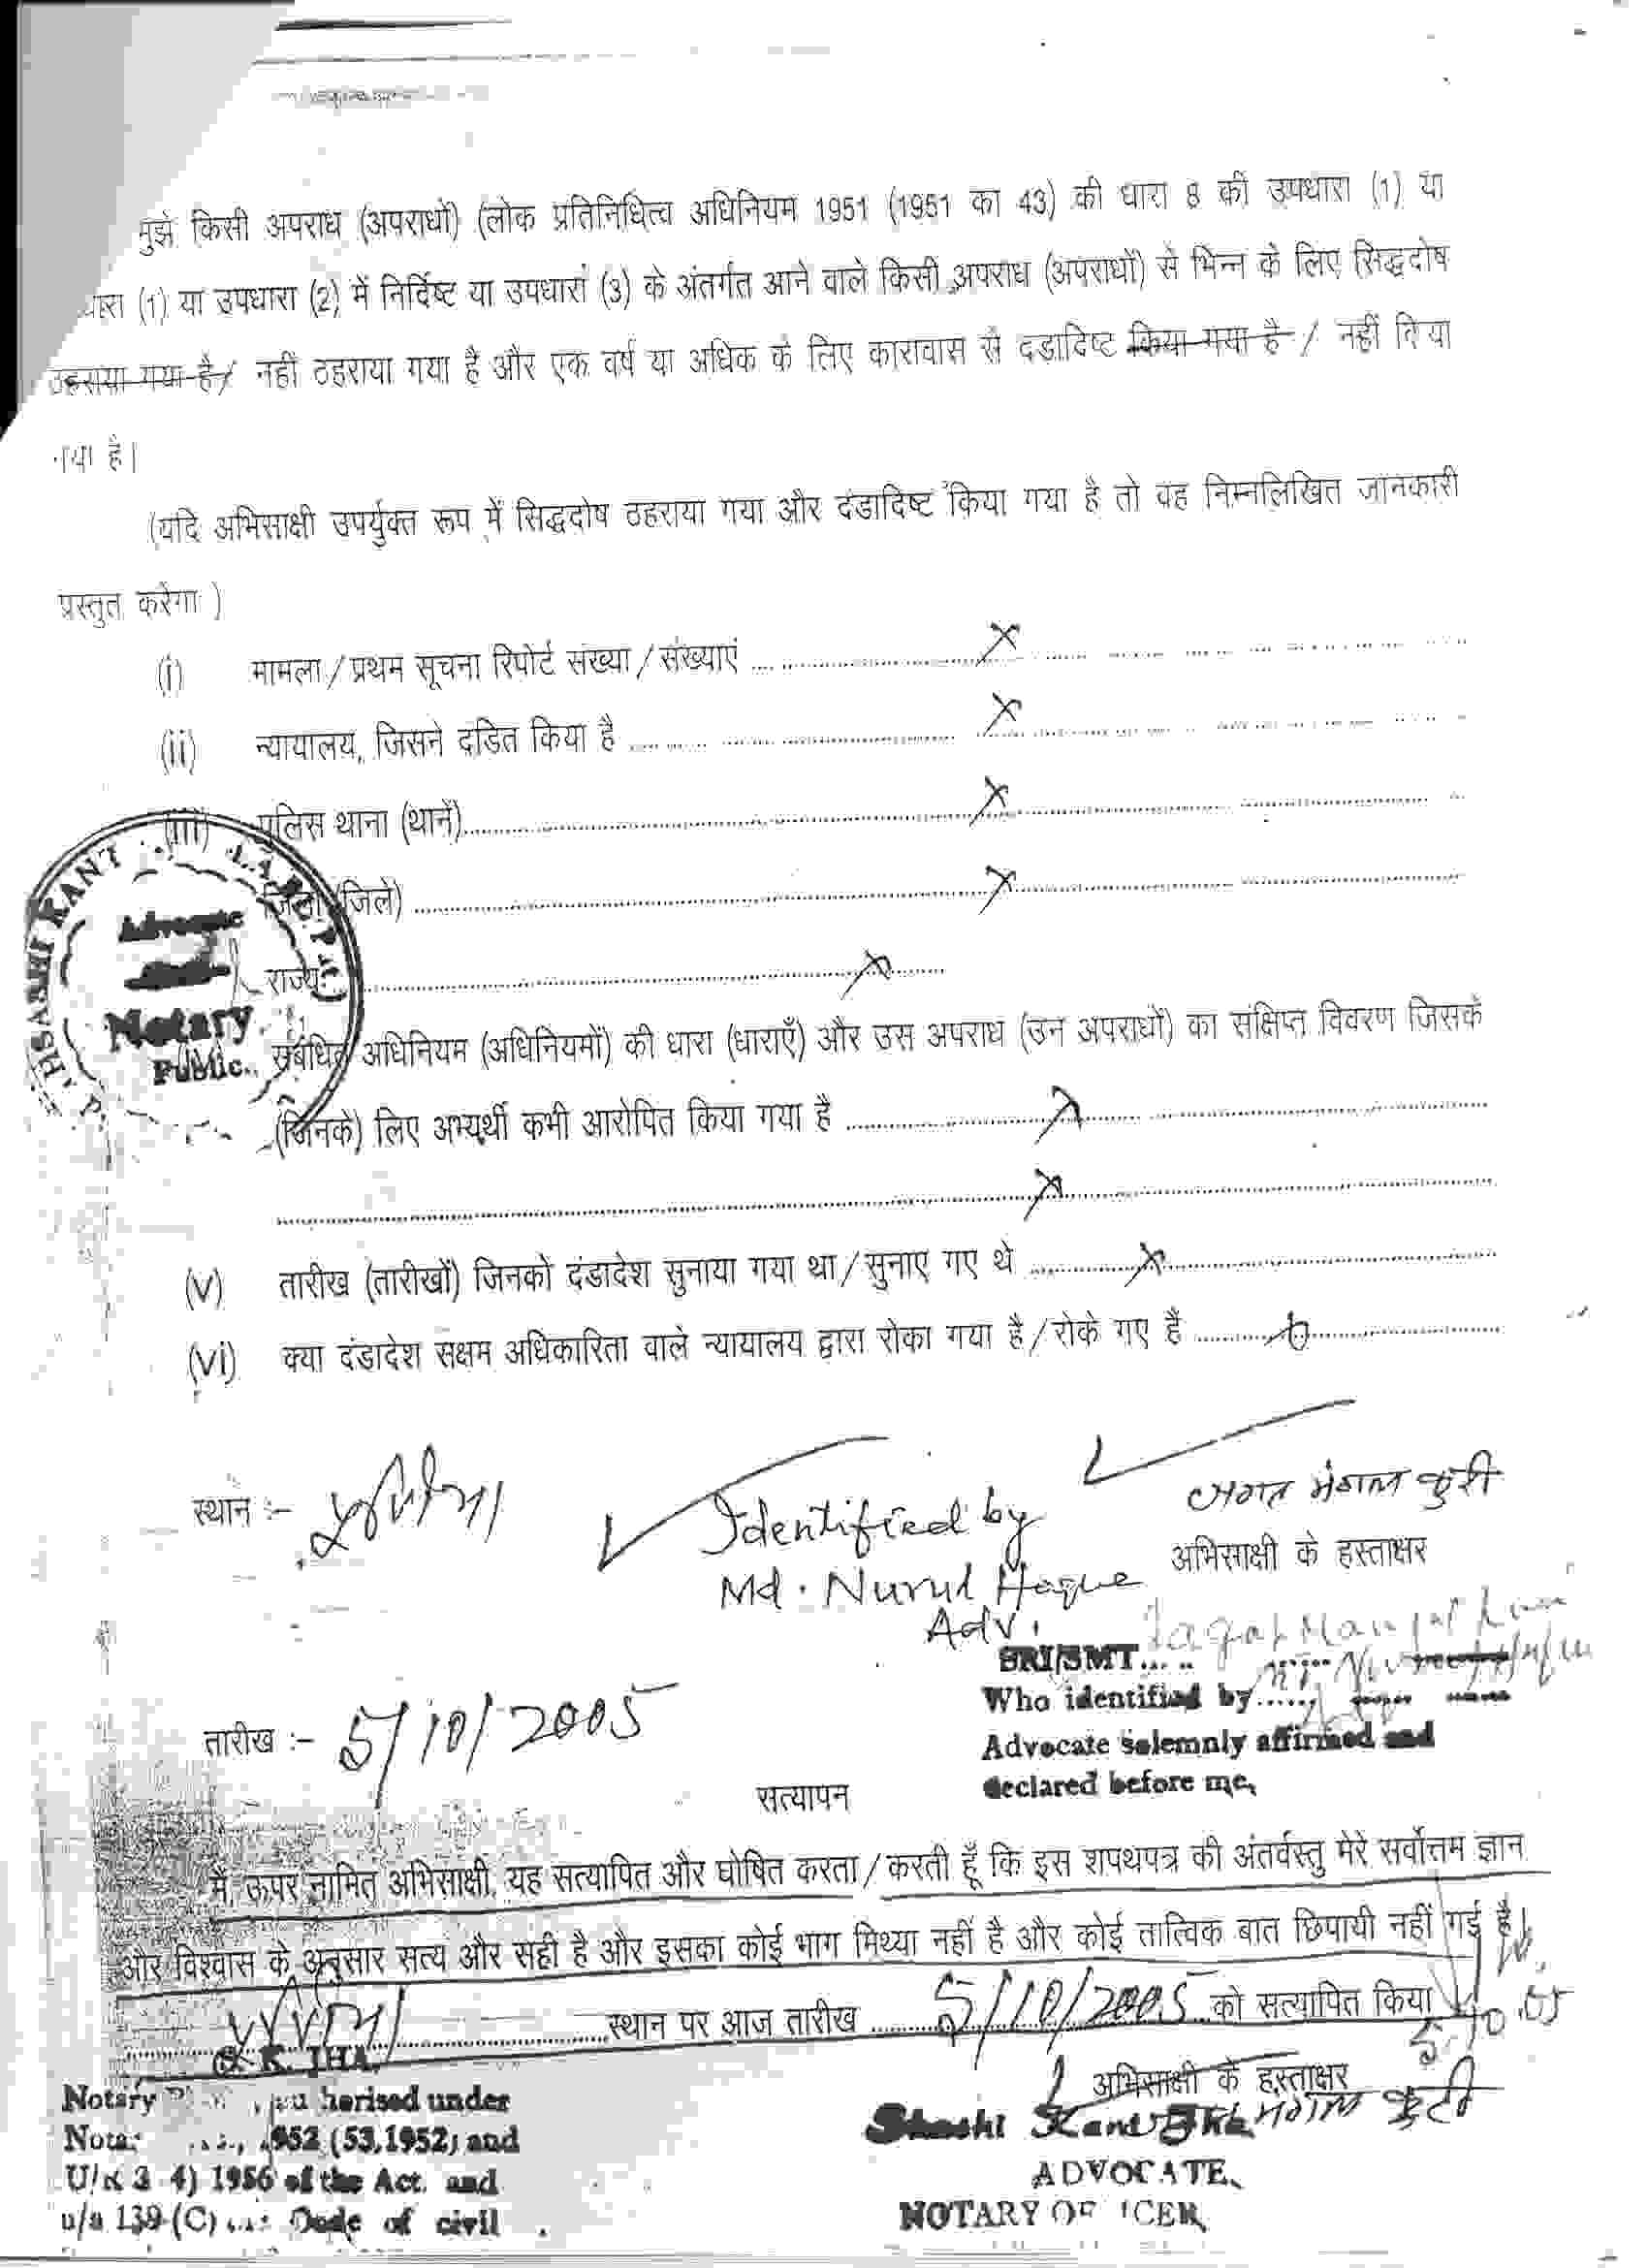 मुझे किसी अपराध (अपराधों) (लोक प्रतिनिधित्व अधिनियम 1951 (1951 का 43) की धारा 8 की उपधारा (1) या
(1) या उपधारा (2) में निर्दिष्ट या उपधारा (3) के अंतर्गत आने वाले किसी अपराध (अपराधों) से भिन्न के लिए सिद्धदोष
ठहराया गया है / नहीं ठहराया गया है और एक वर्ष या अधिक के लिए कारावास से दंडादिष्ट किया गया है / नहीं किया
गया है।
(यदि अभिसाक्षी उपर्युक्त रूप में सिद्धदोष ठहराया गया और दंडादिष्ट किया गया है तो वह निम्नलिखित जानकारी
प्रस्तुत करेगा )
(i) मामला / प्रथम सूचना रिपोर्ट संख्या / संख्याएं .... x
(ii) न्यायालय, जिसने दंडित किया है .... x
(iii) पुलिस थाना (थानें) .... x
जिला (जिले) .... x
राज्य .... x
संबंधित अधिनियम (अधिनियमों) की धारा (धाराएँ) और उस अपराध (उन अपराधों) का संक्षिप्त विवरण जिसके
(जिनके) लिए अभ्यर्थी कभी आरोपित किया गया है .... x
.... x
(v) तारीख (तारीखों) जिनको दंडादेश सुनाया गया था / सुनाए गए थे .... x
(vi) क्या दंडादेश सक्षम अधिकारिता वाले न्यायालय द्वारा रोका गया है / रोके गए है ....
SHASHI KANT
Advocate
Notary
Public
स्थान :- पूर्णिया
Identified by
Md. Nurul Haque
Adv.
अभिसाक्षी के हस्ताक्षर
SRI/SMT.....
Who identified by......
Advocate solemnly affirmed and
declared before me,
तारीख :- 5/10/2005
सत्यापन
मैं, ऊपर नामित अभिसाक्षी, यह सत्यापित और घोषित करता / करती हूँ कि इस शपथपत्र की अंतर्वस्तु मेरे सर्वोत्तम ज्ञान
और विश्वास के अनुसार सत्य और सही है और इसका कोई भाग मिथ्या नहीं है और कोई तात्विक बात छिपायी नहीं गई है।
पूर्णिया .... स्थान पर आज तारीख .... 5/10/2005 को सत्यापित किया
5.10.05
अभिसाक्षी के हस्ताक्षर
S. K. JHA,
Notary herised under
1952 (53,1952) and
1956 of the Act. and
u/s 139 (C) Code of civil
Shashi Kant Jha
ADVOCATE,
NOTARY OFFICER